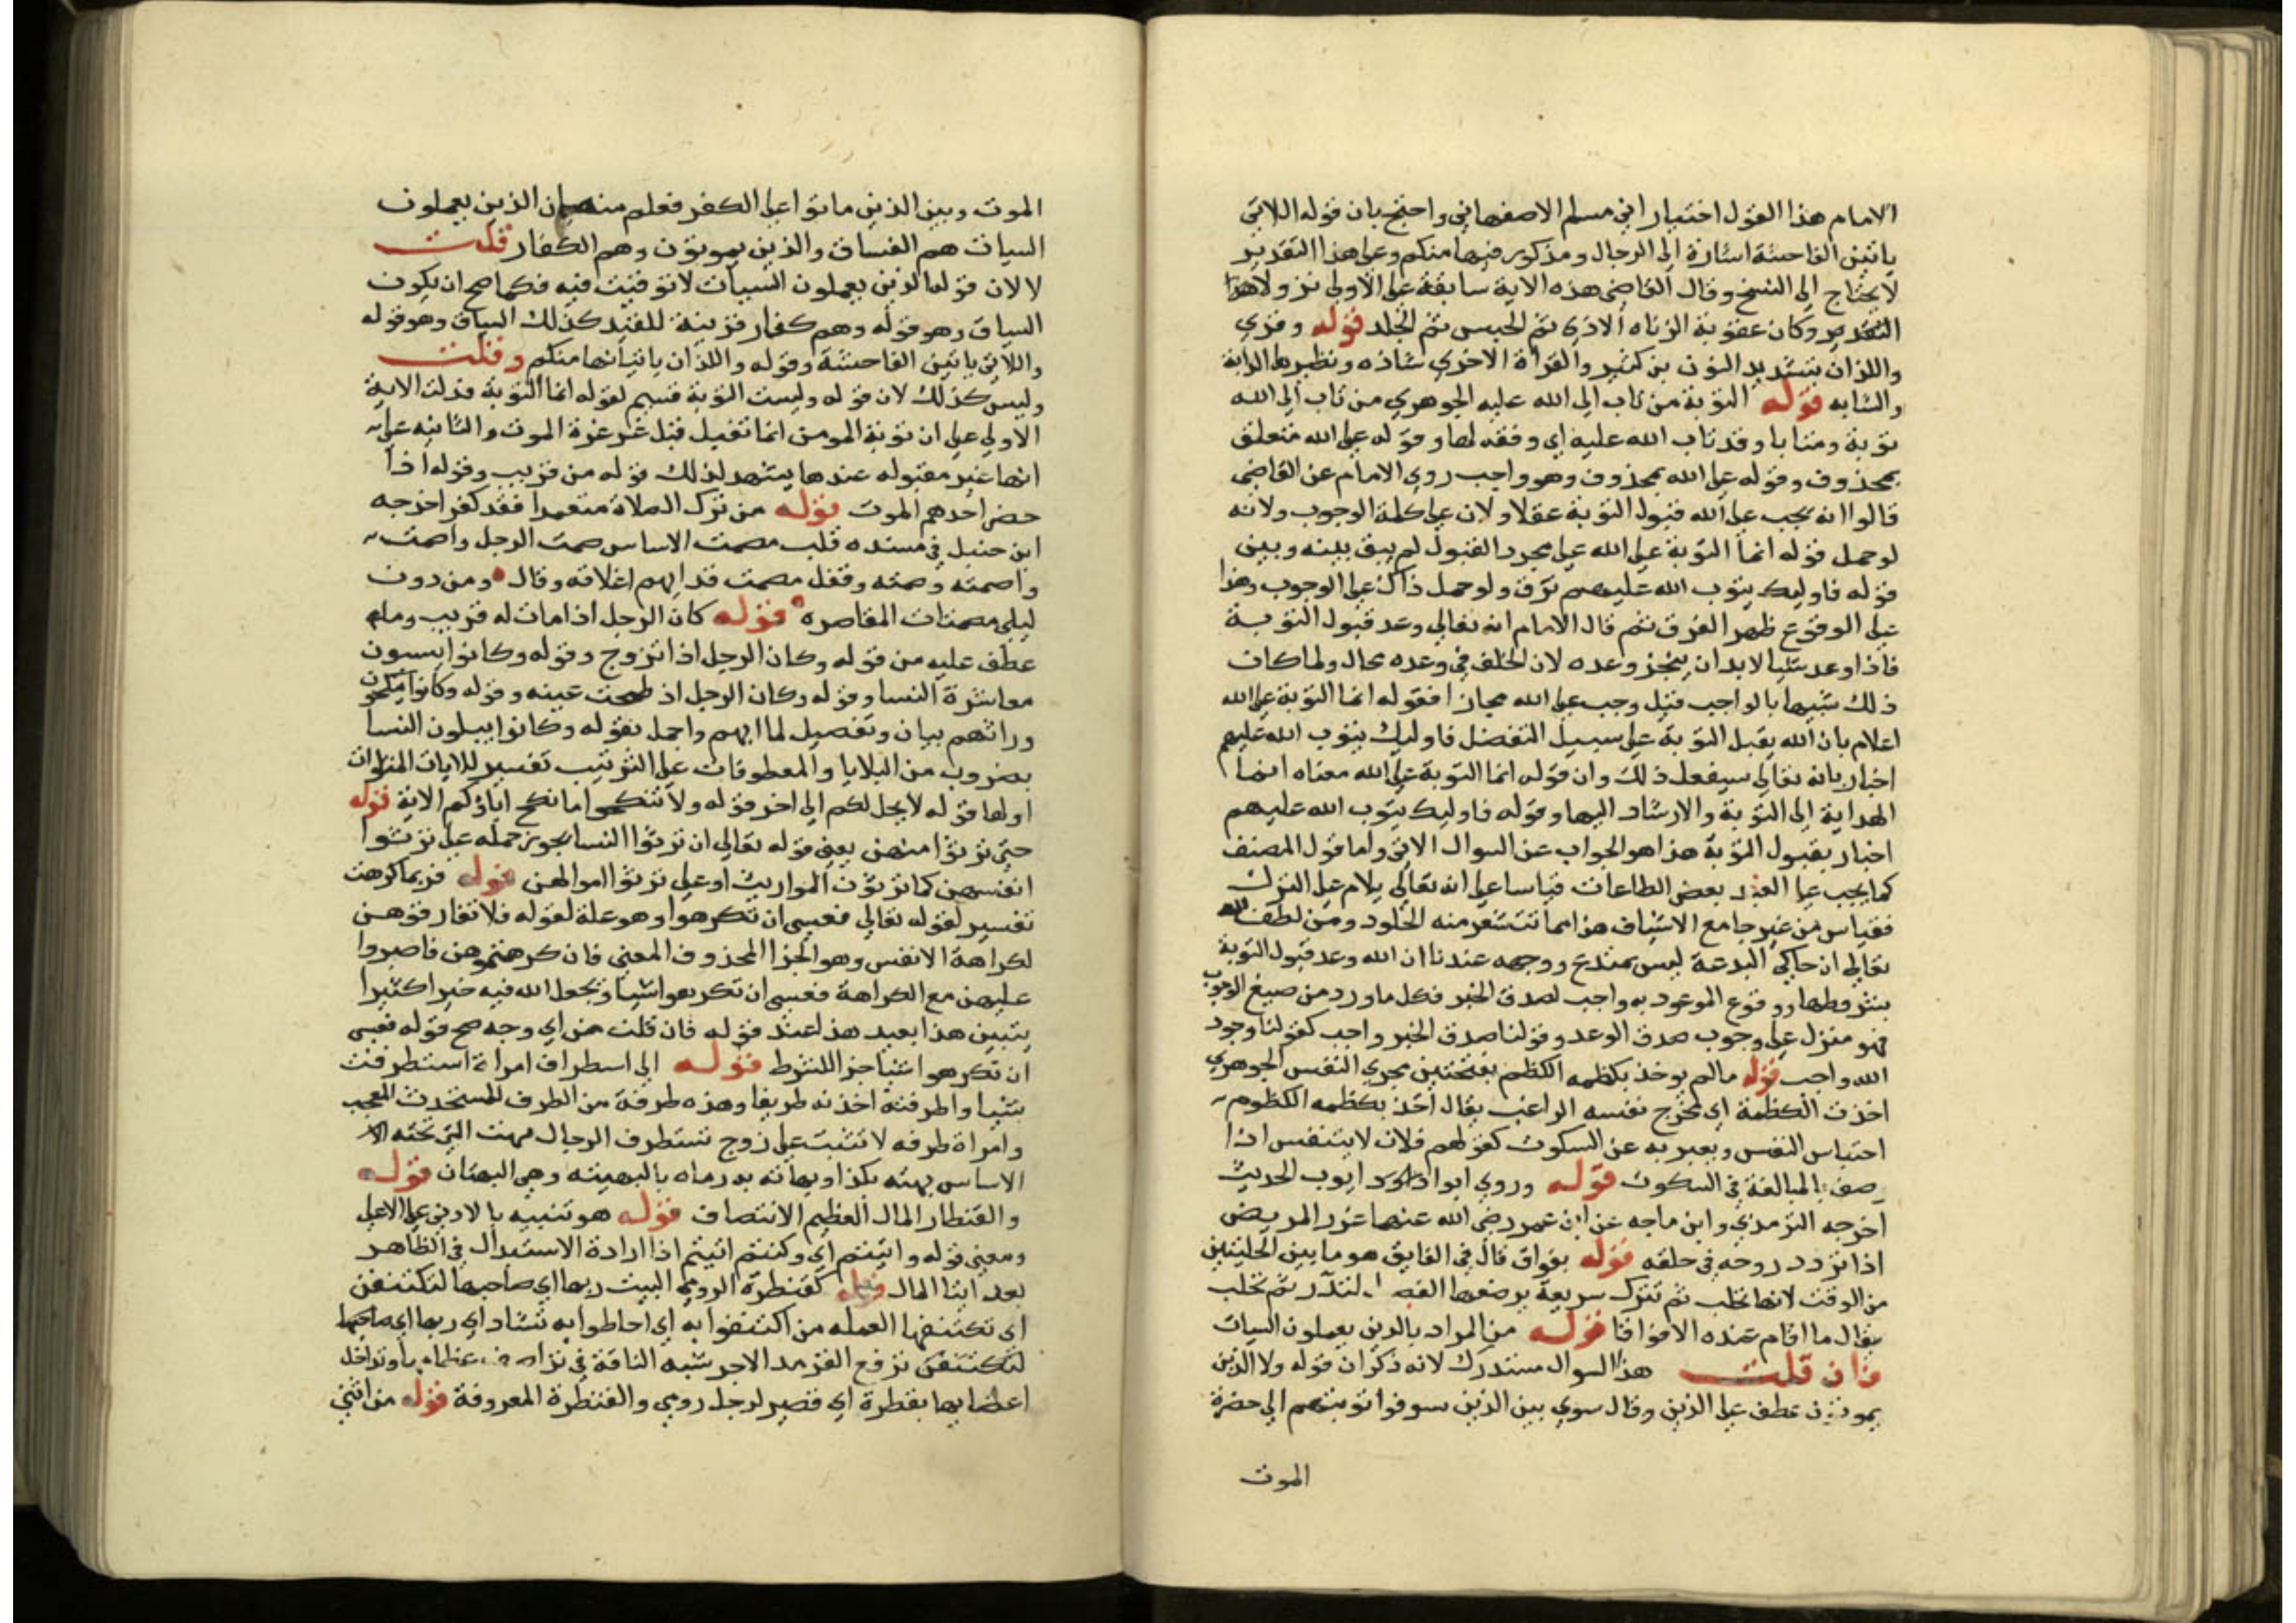 الامام هذا القول اختيار ابي مسلم الاصفهاني واحتج بان قوله اللاتي
ياتين الفاحشة اشارة الى الرجال ومذكور فيها منكم وعلى هذا التقدير
لا يحتاج الى النسخ وقال القاضي هذه الاية سابقة على الاولى نزولا هذا
التقدير وكان عقوبة الزناه الاذى ثم الحبس ثم الجلد قوله وقري
واللذان بتشديد النون بن كثير والقراة الاخرى شاذه ونظيرها الدابة
والشابه قوله التوبة من تاب الى الله عليه الجوهري من تاب الى الله
توبة ومتابا وقد تاب الله عليه اي وفقه لها وقوله على الله متعلق
بمحذوف وقوله على الله بمحذوف وهو واجب روى الامام عن القاضي
قالوا انه يجب على الله قبول التوبة عقلا ولان على كلمة الوجوب ولانه
لو حمل قوله انما التوبة على الله على مجرد القبول لم يبق بينه وبين
قوله فاوليك يتوب الله عليهم فرق ولو حمل ذاك على الوجوب وهذا
على الوقوع ظهر الفرق ثم قال الامام انه تعالى وعد قبول التوبة
فاذا وعد شيا لابد ان ينجز وعده لان الخلف في وعده محال ولما كان
ذلك شبيها بالواجب قيل وجب على الله مجازا فقوله انما التوبة على الله
اعلام بان الله يقبل التوبة على سبيل التفضل فاوليك يتوب الله عليهم
اخبار بانه تعالى سيفعل ذلك وان قوله انما التوبة على الله معناه انما
الهداية الى التوبة والارشاد اليها وقوله فاوليك يتوب الله عليهم
اخبار بقبول التوبة هذا هو الجواب عن السوال الاتي واما قول المصنف
كما يجب على العبد بعض الطاعات قياسا على انه تعالى يلام على الترك
فقياس من غير جامع الاشياف هذا مما تتشعر منه الجلود ومن لطف الله
تعالى ان حاكي البدعة ليس بمتدع ووجهه عندنا ان الله وعد قبول التوبة
بشروطها ووقوع الموعود به واجب لصدق الخبر فكل ما ورد من صيغ الوجوب
فهو منزل على وجوب صدق الوعد وقولنا صدق الخبر واجب كقولنا وجود
الله واجب قوله مالم يوخذ بكظمه الكظم بفتحتين مجرى النفس الجوهري
اخذت الكظمة اي مخرج نفسه الراغب يقال اخذ بكظمه الكظوم
احتباس النفس ويعبر به عن السكوت كقولهم فلان لا يتنفس اذا
وصف بالمبالغة في السكوت قوله وروى ابوا داود ايوب الحديث
اخرجه الترمذي وابن ماجه عن ابن عمر رضي الله عنهما غرر المريض
اذا تردد روحه في حلقه قوله بفواق قال في الفايق هو ما بين الحلبتين
من الوقت لانها تحلب ثم تترك سريعة يرضعها الفصيل لتدر ثم تحلب
يقال ما اقام عنده الا فواقا قوله من المراد بالذين يعملون السيات
فان قلت هذا السوال مستدرك لانه ذكر ان قوله ولا الذين
يموتون عطف على الذين وقال سوي بين الذين سوفوا توبتهم الى حضرة
الموت
الموت وبين الذين ماتوا على الكفر فعلم منه ان الذين يعملون
السيات هم الفساق والذين يموتون وهم الكفار قلت
لا لان قوله الذين يعملون السيات لا توقيت فيه فكما صح ان يكون
السياق وهو قوله وهم كفار قرينة للقيد كذلك السياق وهو قوله
واللاتي ياتين الفاحشة وقوله واللذان ياتيانها منكم وقلت
وليس كذلك لان قوله وليست التوبة قسيم لقوله انما التوبة فدلت الاية
الاولى على ان توبة المومن انما تقبل قبل غرغرة الموت والثانيه على
انها غير مقبوله عندها يشهد لذلك قوله من قريب وقوله اذا
حضر احدهم الموت قوله من ترك الصلاة متعمدا فقد كفر اخرجه
ابن حنبل في مسنده قلب مصمت الاساس صمت الرجل واصمت
واصمته وصمته وقفل مصمت قد ابهم اغلاقه وقال ومن دون
ليلى مصمتات المقاصره قوله كان الرجل اذا مات له قريب وما
عطف عليه من قوله وكان الرجل اذا تزوج وقوله وكانوا يسيون
معاشرة النسا وقوله وكان الرجل اذ طمحت عينه وقوله وكانوا ينكحون
وراثهم بيان وتفصيل لما ابهم واجمل بقوله وكانوا يبلون النسا
بضروب من البلايا والمعطوفات على الترتيب تفسير للايات المتواليات
اولها قوله لا يحل لكم الى اخر قوله ولا تنكحوا ما نكح اباوكم الاية قوله
حتى ترثوا منهن يعني قوله تعالى ان ترثوا النسا يجوز حمله على ترثوا
انفسهن كما ترثون المواريث او على ترثوا اموالهن قوله فربما كرهت
تفسير لقوله تعالى فعسى ان تكرهوا وهو علة لقوله فلا تفارقوهن
لكراهة الانفس وهو الجزا المحذوف المعنى فان كرهتموهن فاصبروا
عليهن مع الكراهة فعسى ان تكرهوا شيا ويجعل الله فيه خيرا كثيرا
يتبين هذا بعيد هذا عند قوله فان قلت من اي وجه صح قوله فعسى
ان تكرهوا شيا جزا للشرط قوله الى اسطراف امراة استطرفت
شيا واطرفته اخذته طريفا وهذه طرفة من الطرف للمستحدث المعجب
وامراة طرفه لا تثبت على زوج تستطرف الرجال بهت التي تحته
الاساس بهته بكذا وباهته به رماه بالبهيته وهي البهتان قوله
والقنطار المال العظيم الانتصاف قوله هو تنبيه بالادنى على الاعلى
ومعنى قوله واتيتم اي وكنتم اتيتم اذا ارادة الاستبدال في الظاهر
بعد ايتا المال قوله كقنطرة الرومي البيت ربها اي صاحبها لتكتنفن
اي تكتنفها العمله من اكتنفوا به اي احاطوا به تشاد اي ربها اي صاحبها
لتكتنفن ترفع القرمد الاجر شبه الناقة في تراصف عظامها وتداخل
اعضايها بقنطرة اي قصير لرجل رومي والقنطرة المعروفة قوله من اثني